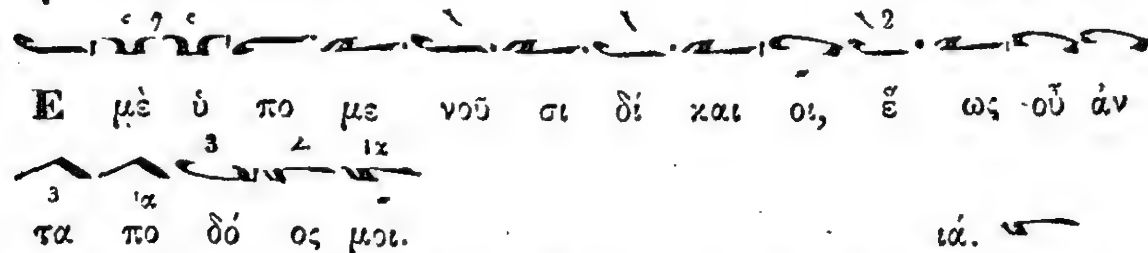 Ε μὲ ὑ πο με νοῦ σι δί και οι, ἕ ως οὗ ἀν
τα πο δό ος μοι. ιά.